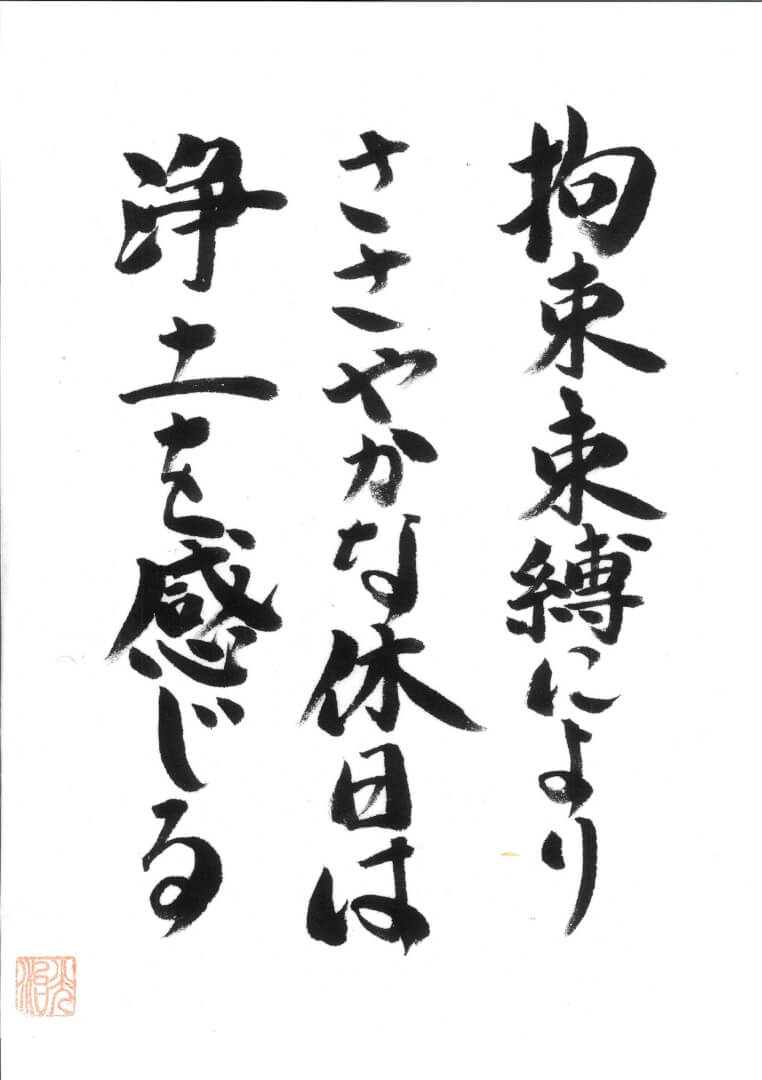 拘束束縛により
ささやかな休日は
浄土を感じる